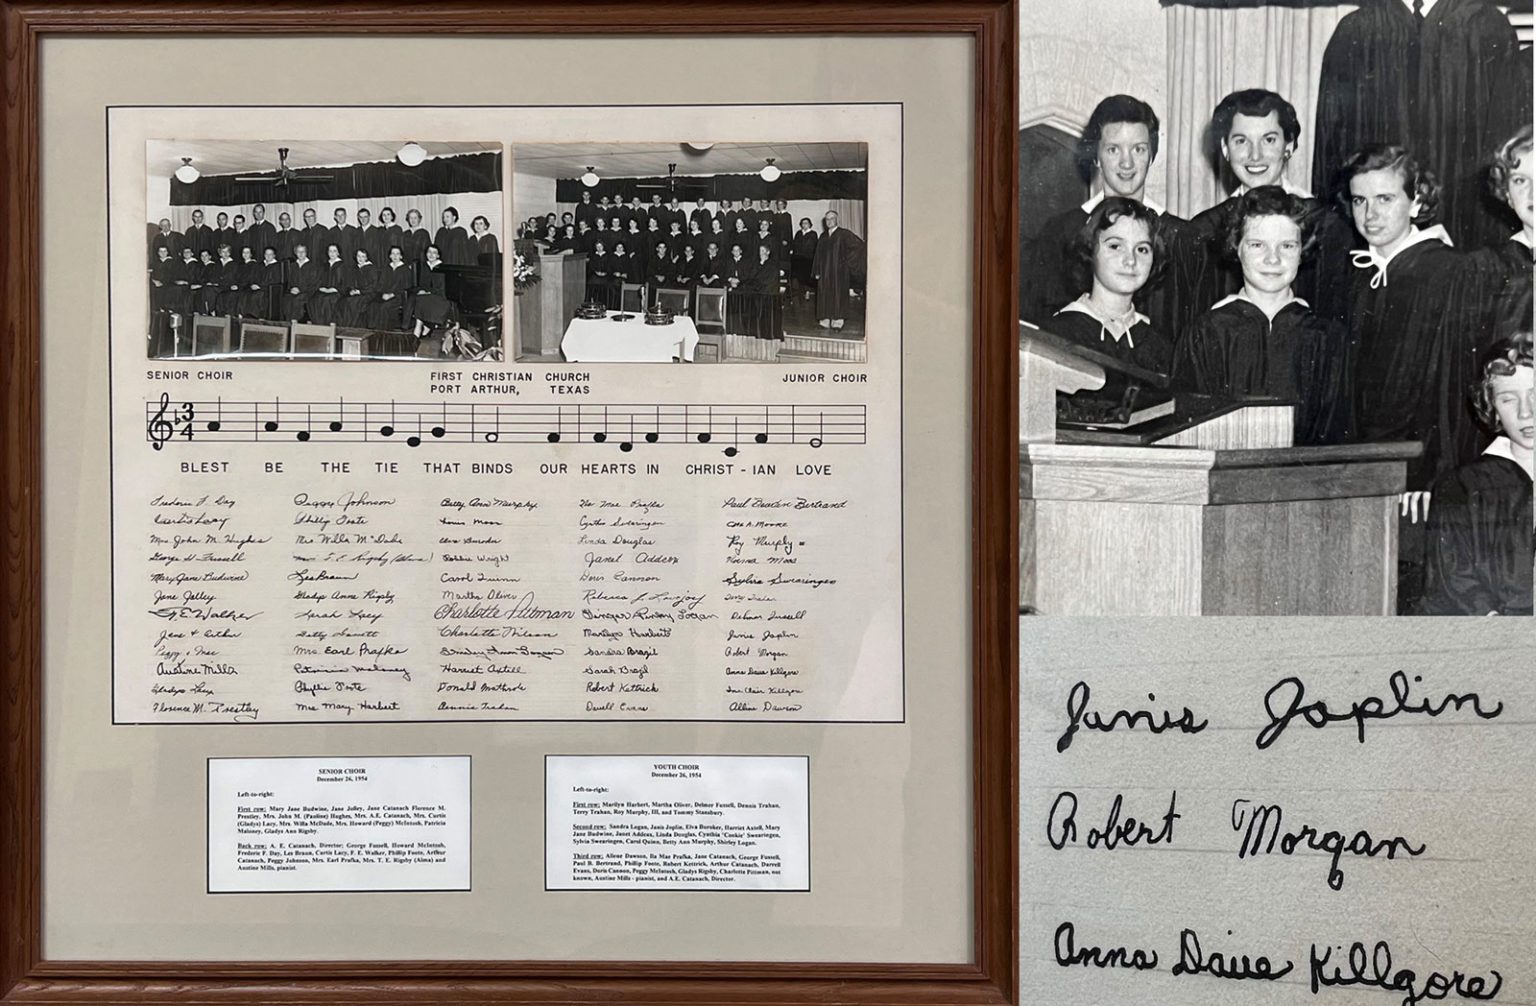 SENIOR CHOIR
FIRST CHRISTIAN CHURCH
PORT ARTHUR, TEXAS
JUNIOR CHOIR
3
4
BLEST BE THE TIE THAT BINDS OUR HEARTS IN CHRIST - IAN LOVE
Frederic F. Day Peggy Johnson Betty Ann Murphy Ila Mae Prafka Paul Bertrand
Curtis Lacy Phillip Foote Cynthia Swearingen A. Moore
Mrs John M. Hughes Mrs Willa McDade Linda Douglas Roy Murphy
George H. Fussell Mrs T. E. Rigsby (Alma) Bobbie Wright Janet Addcox Norma Moss
Mary Jane Budwine Les Braun Carol Quinn Doris Cannon Sylvia Swearingen
Jane Jolley Gladys Anne Rigsby Martha Oliver Rebecca J. Lovejoy
F. E. Walker Sarah Lacy Charlotte Pittman Ginger Logan Delmer Fussell
Betty Charlotte Wilson Marilyn Harbert Janis Joplin
Peggy Mac Mrs. Earl Prafka Sandra Brazil Robert Morgan
Austine Mills Patricia Maloney Harriet Axtell Sarah Brazil Anna Dave Killgore
Gladys Lacy Phyllis Foote Donald Robert Kettrick Killgore
Florence M. Prestley Mrs Mary Harbert Dennis Trahan Darell Evans Allene Dawson
SENIOR CHOIR
December 26, 1954
Left-to-right:
First row: Mary Jane Budwine, Jane Jolley, Jane Catanach Florence M.
Prestley, Mrs. John M. (Pauline) Hughes, Mrs. A.E. Catanach, Mrs. Curtis
(Gladys) Lacy, Mrs. Willa McDade, Mrs. Howard (Peggy) McIntosh, Patricia
Maloney, Gladys Ann Rigsby.
Back row: A. E. Catanach, Director; George Fussell, Howard McIntosh,
Frederic F. Day, Les Braun, Curtis Lacy, F. E. Walker, Phillip Foote, Arthur
Catanach, Peggy Johnson, Mrs. Earl Prafka, Mrs. T. E. Rigsby (Alma) and
Austine Mills, pianist.
YOUTH CHOIR
December 26, 1954
Left-to-right:
First row: Marilyn Harbert, Martha Oliver, Delmer Fussell, Dennis Trahan,
Terry Trahan, Roy Murphy, III, and Tommy Stansbury.
Second row: Sandra Logan, Janis Joplin, Elva Bureker, Harriet Axtell, Mary
Jane Budwine, Janet Addcox, Linda Douglas, Cynthia 'Cookie' Swearingen,
Sylvia Swearingen, Carol Quinn, Betty Ann Murphy, Shirley Logan.
Third row: Allene Dawson, Ila Mae Prafka, Jane Catanach, George Fussell,
Paul B. Bertrand, Phillip Foote, Robert Kettrick, Arthur Catanach, Darrell
Evans, Doris Cannon, Peggy McIntosh, Gladys Rigsby, Charlotte Pittman, not
known, Austine Mills - pianist, and A.E. Catanach, Director.
Janis Joplin
Robert Morgan
Anna Dave Killgore